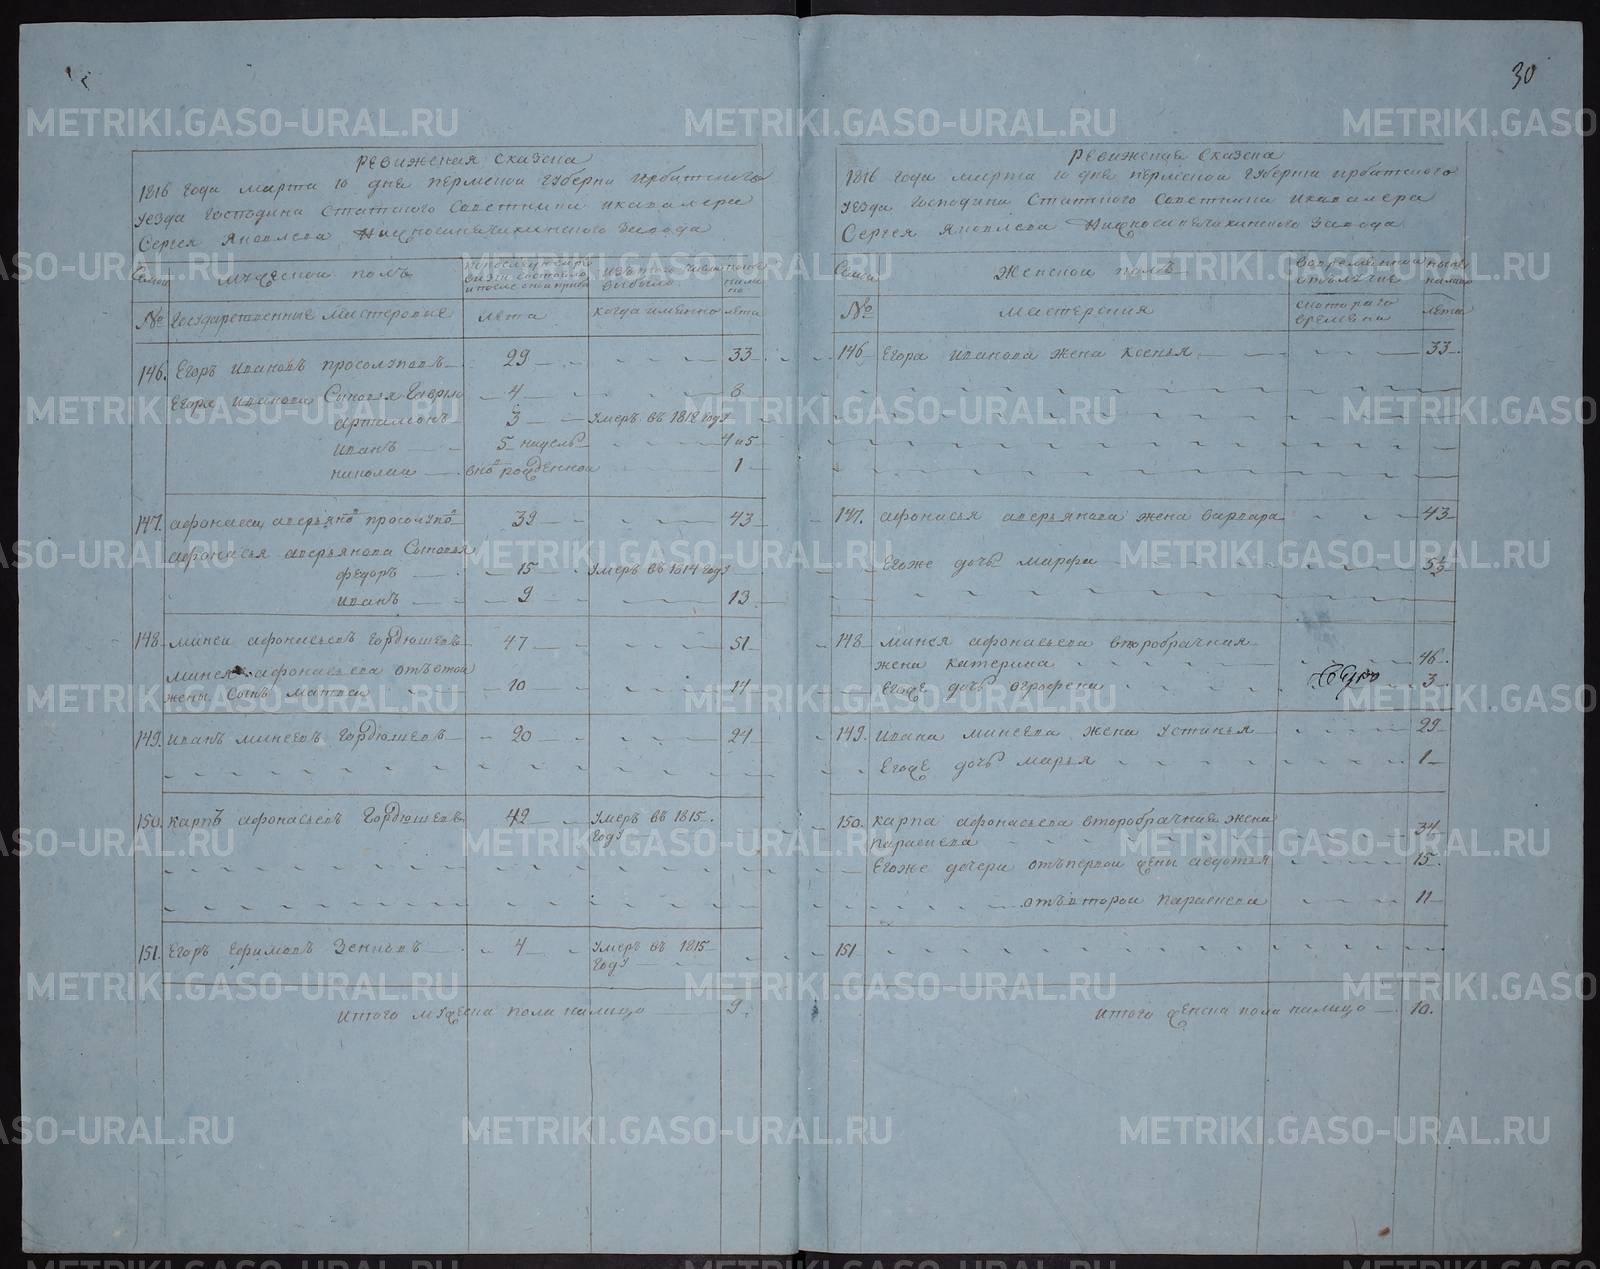 30
Ревижеская сказска
1816 года марта 10 дня пермской губерни ирбитского
уезда господина Статского Советника икавалера
Сергея Яковлева Нижносинячихинского завода
Семьи
мужеской полъ
изътого числа выбыло
ныне налицо
№ государственные мастеровые
лета
когда имянно
лета
146. Егоръ ивановъ просолуповъ 29 33
Егора иванова Сыновья Гаврило 4 8
артамонъ 3 умеръ въ 1812 году
иванъ 5 недель 4 и 5
николаи вновь рожденной 1
147. афонасеи аверьяновъ просолуповъ 39 43
афонасья аверьянова Сыновья
федоръ 15 умеръ въ 1814 году
иванъ 9 13
148 минеи афонасьевъ гордюшевъ 47 51
минея афонасьева отъ этой
жены Сынъ матвеи 10 14
149. иванъ минеевъ гордюшевъ 20 24
150. карпъ афонасьевъ гордюшевъ 42 умеръ въ 1815
году
151. Егоръ Ефимовъ Зенковъ 4 умеръ въ 1815
году
итого мужеска пола налицо 9.
Ревижеская сказска
1816 года марта 10 дня пермской губерни ирбитского
уезда господина Статского Советника икавалера
Сергея Яковлева Нижносинячихинского завода
Семьи
женской полъ
вовременной отълучке
ныне налицо
№
мастерския
скотораго времени
лета
146 Егора иванова жена ксенья 33
147. афонасья аверьянова жена варвара 43
Егоже дочь марфа 5½
148 минея афонасьева второбрачная
жена катерина 46.
Егоже дочь огрофена 3
149. ивана минеева жена устинья 29
Егоже дочь марья 1
150. карпа афонасьева второбрачная жена
парасковья 34
Егоже дочери отъпервой жены авдотья 15.
отъвторой парасковья 11
151
итого женска пола налицо 10.
METRIKI.GASO-URAL.RU